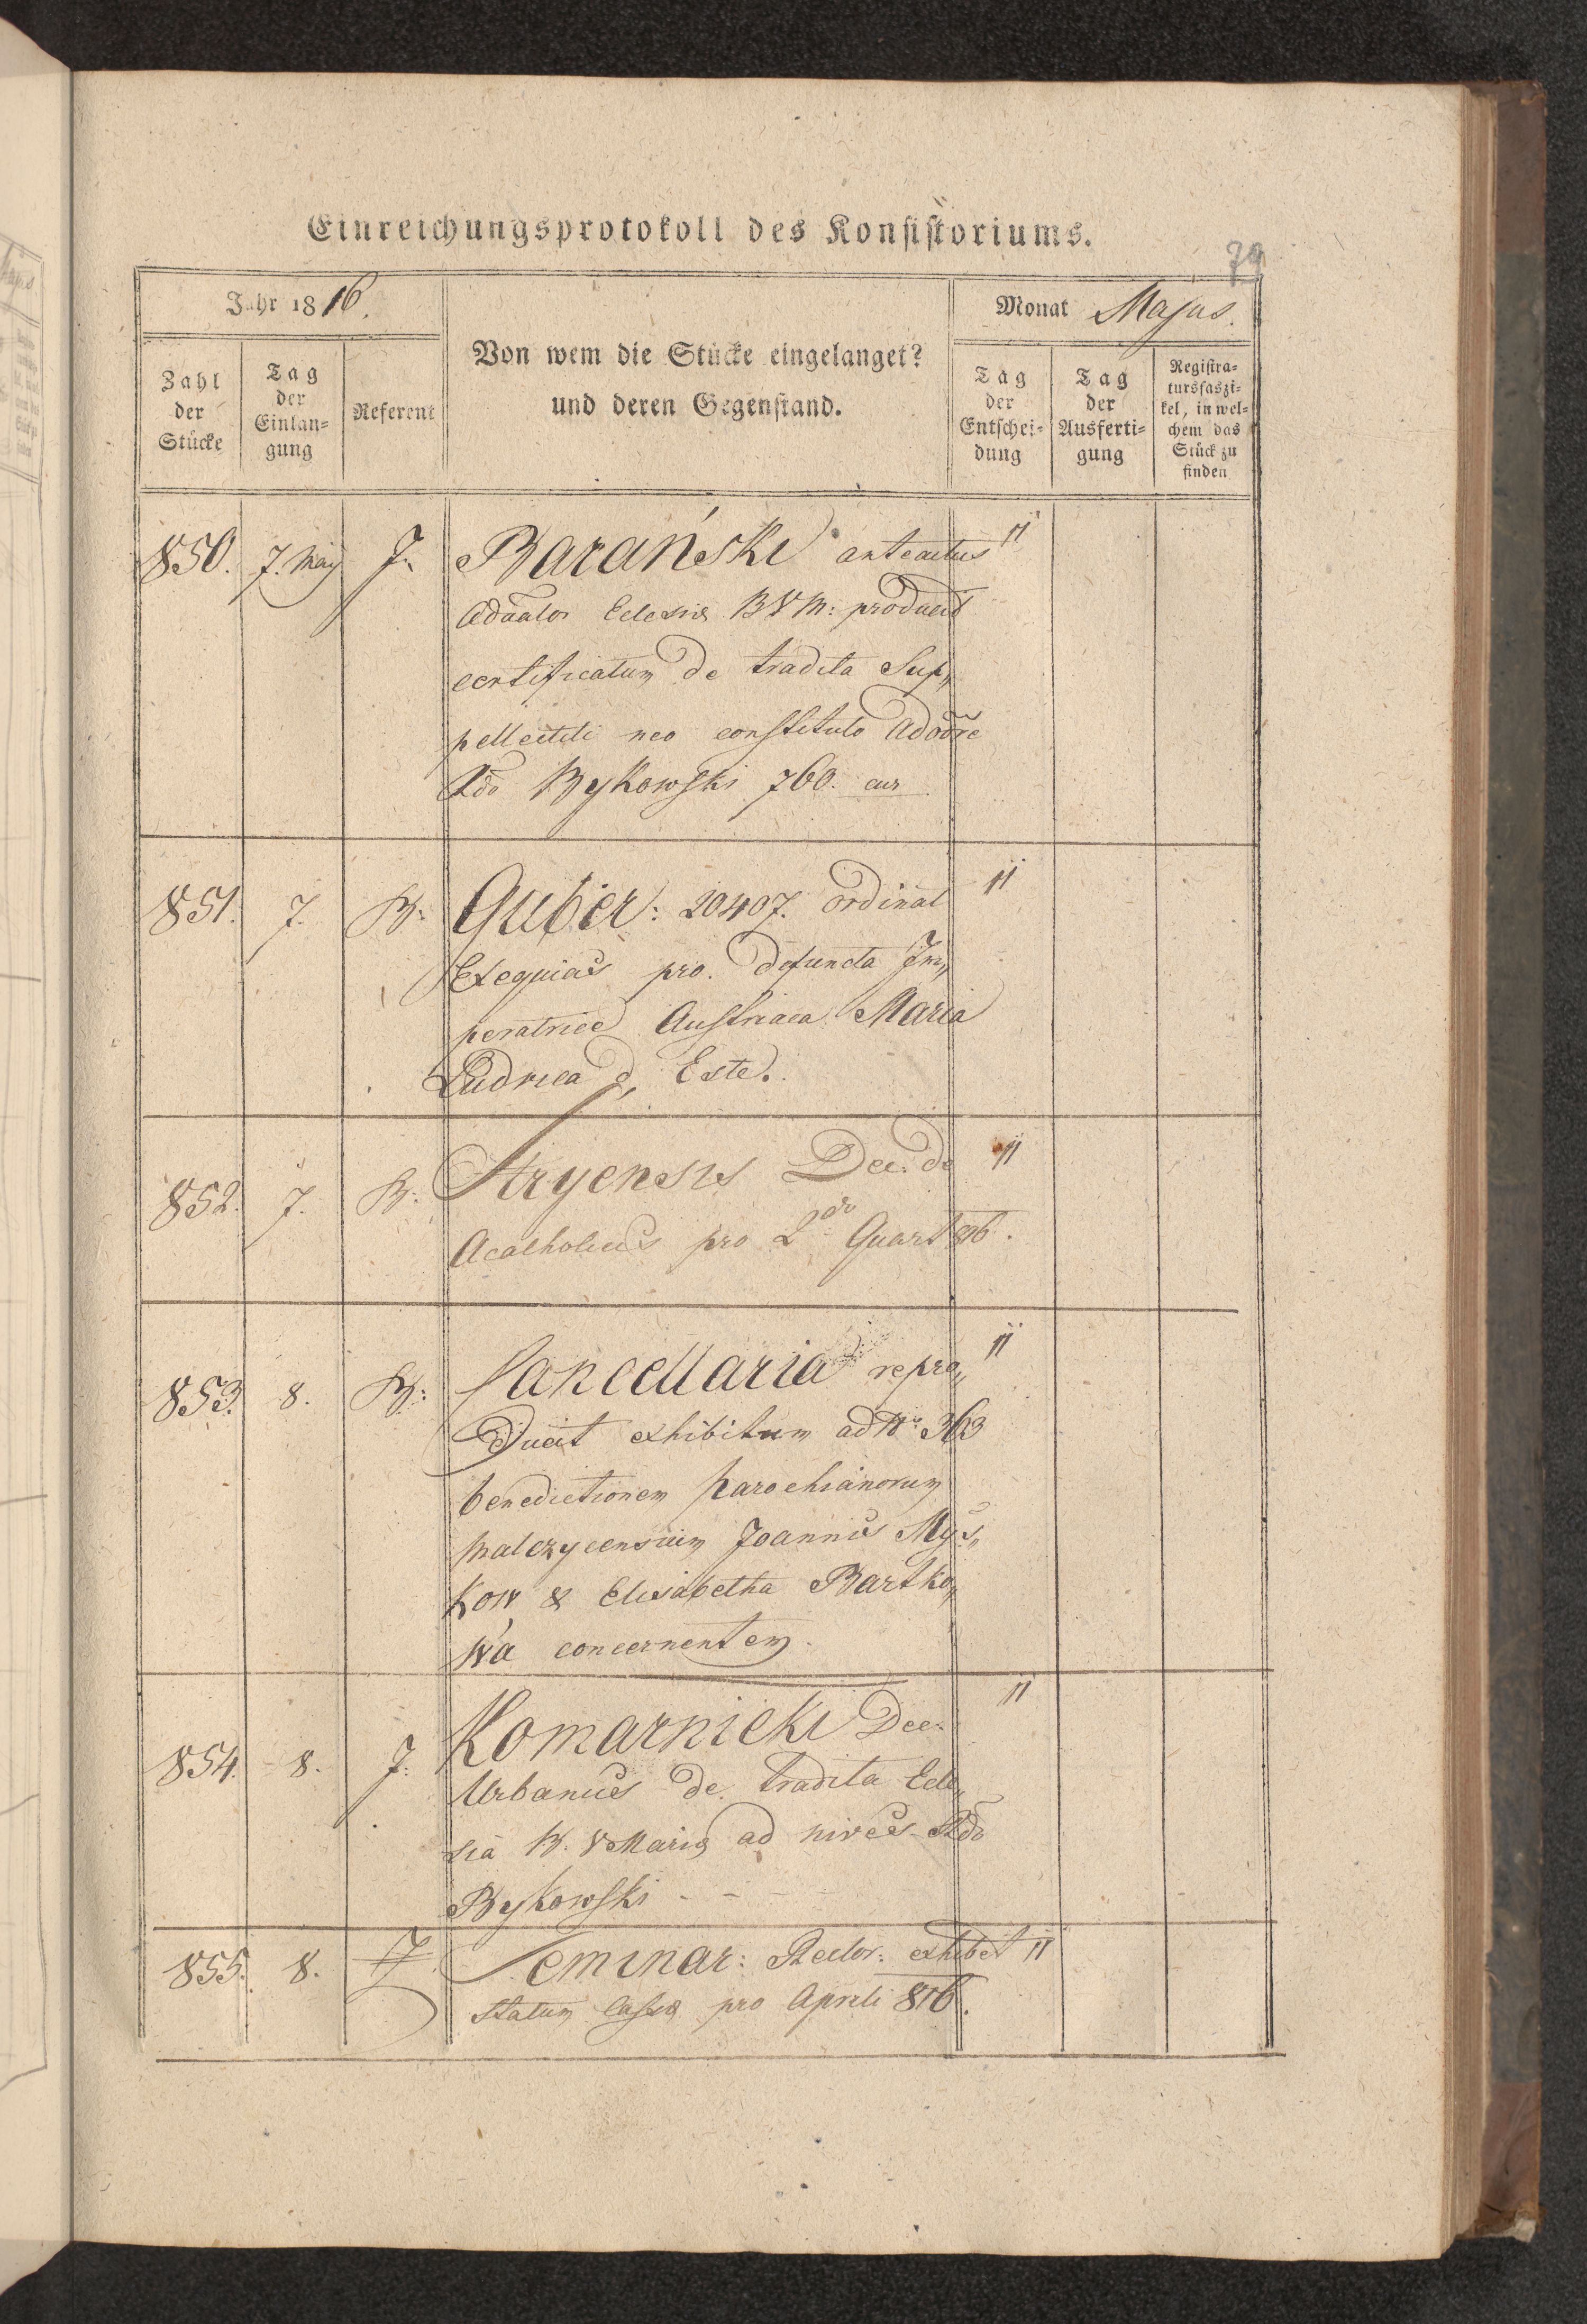 Einreichungsprotokoll des Konsistoriums.
79
Jahr 1816.
Von wem die Stücke eingelanget?
und deren Gegenstand.
Monat Majus.
Zahl
der
Stücke
Tag
der
Einlan=
gung
Referent
Tag
der
Entschei=
dung
Tag
der
Ausferti=
gung
Registra=
tursfaszi=
kel, in wel=
chem das
Stück zu
finden
850. 7. May J. Barański anteactus 11
Ecclesiæ B V M: producit
certificatum de tradita Sup„
pellectili neo constituto
Rdo Bykowski 760. cur
851. 7. B: Guber: 20407. ordinat 11
Exequias pro defuncta Im„
peratrice Austriaca Maria
Ludvica d, Este.
852. 7. B: Stryensis Dec. de 11
Acatholicis pro 2do Quart 816.
853. 8. B: Cancellaria repro„ 11
ducit exhibitum ad Nr. 363
benedictionem parochianorum
Malczycensium Joannis Mys„
kow & Elisabetha Bartko„
wa concernentem.
854. 8. J: Komarnicki Dec. 11
Urbanus de tradita Ecle„
sia B. V Mariæ ad nives Rdo
Bykowski - - -
855. 8. J Seminar: Rector: exhibet 11
statum Cassæ pro Aprili 816.